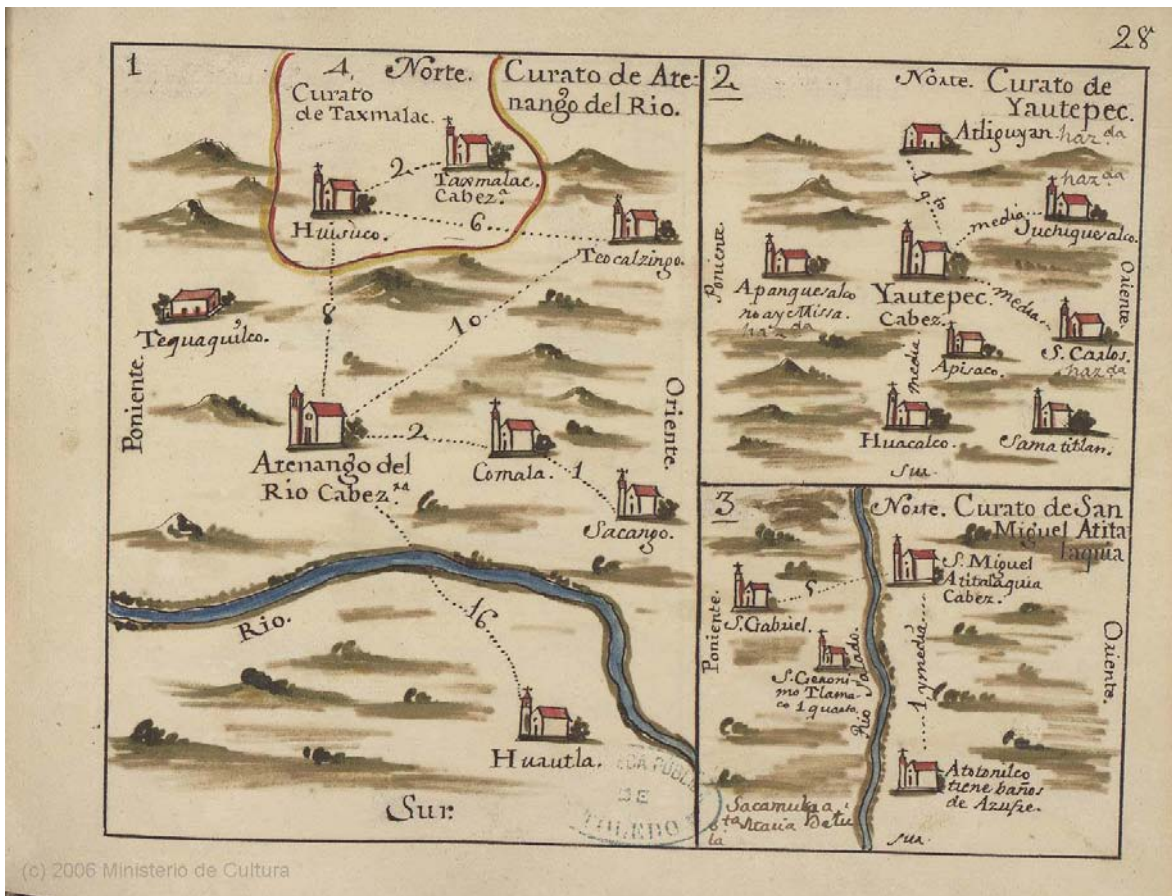 28
1
4. Norte.
Curato
de Taxmalac.
Curato de Ate-
nango del Rio.
2
Taxmalac.
Cabez.ª
Huisuco.
6
Teocalzingo.
8
10
Tequaquilco.
Poniente.
Oriente.
Atenango del
Rio Cabez.ra
2
Comala.
1
Sacango.
Rio.
16
Huautla.
Sur.
2
Norte.
Curato de
Yautepec.
Atliguyan.
haz.da
1 q.to
haz.da
media
Juchiquesalco.
Poniente.
Oriente.
Apanquesalco
no ay Missa.
haz.da
Yautepec.
Cabez.
media
S. Carlos.
haz.da
media
Apisaco.
Huacalco.
Samatitlan.
Sur.
3
Norte.
Curato de San
Miguel Atita
laquia
S. Miguel
Atitalaquia
Cabez.
5
S. Gabriel.
Poniente.
Oriente.
S. Geroni-
mo Tlama-
co 1 quarto.
Rio Salado.
1 y media
Atotonilco
tiene baños
de Azufre.
Sur.
DE
TOLEDO
(c) 2006 Ministerio de Cultura